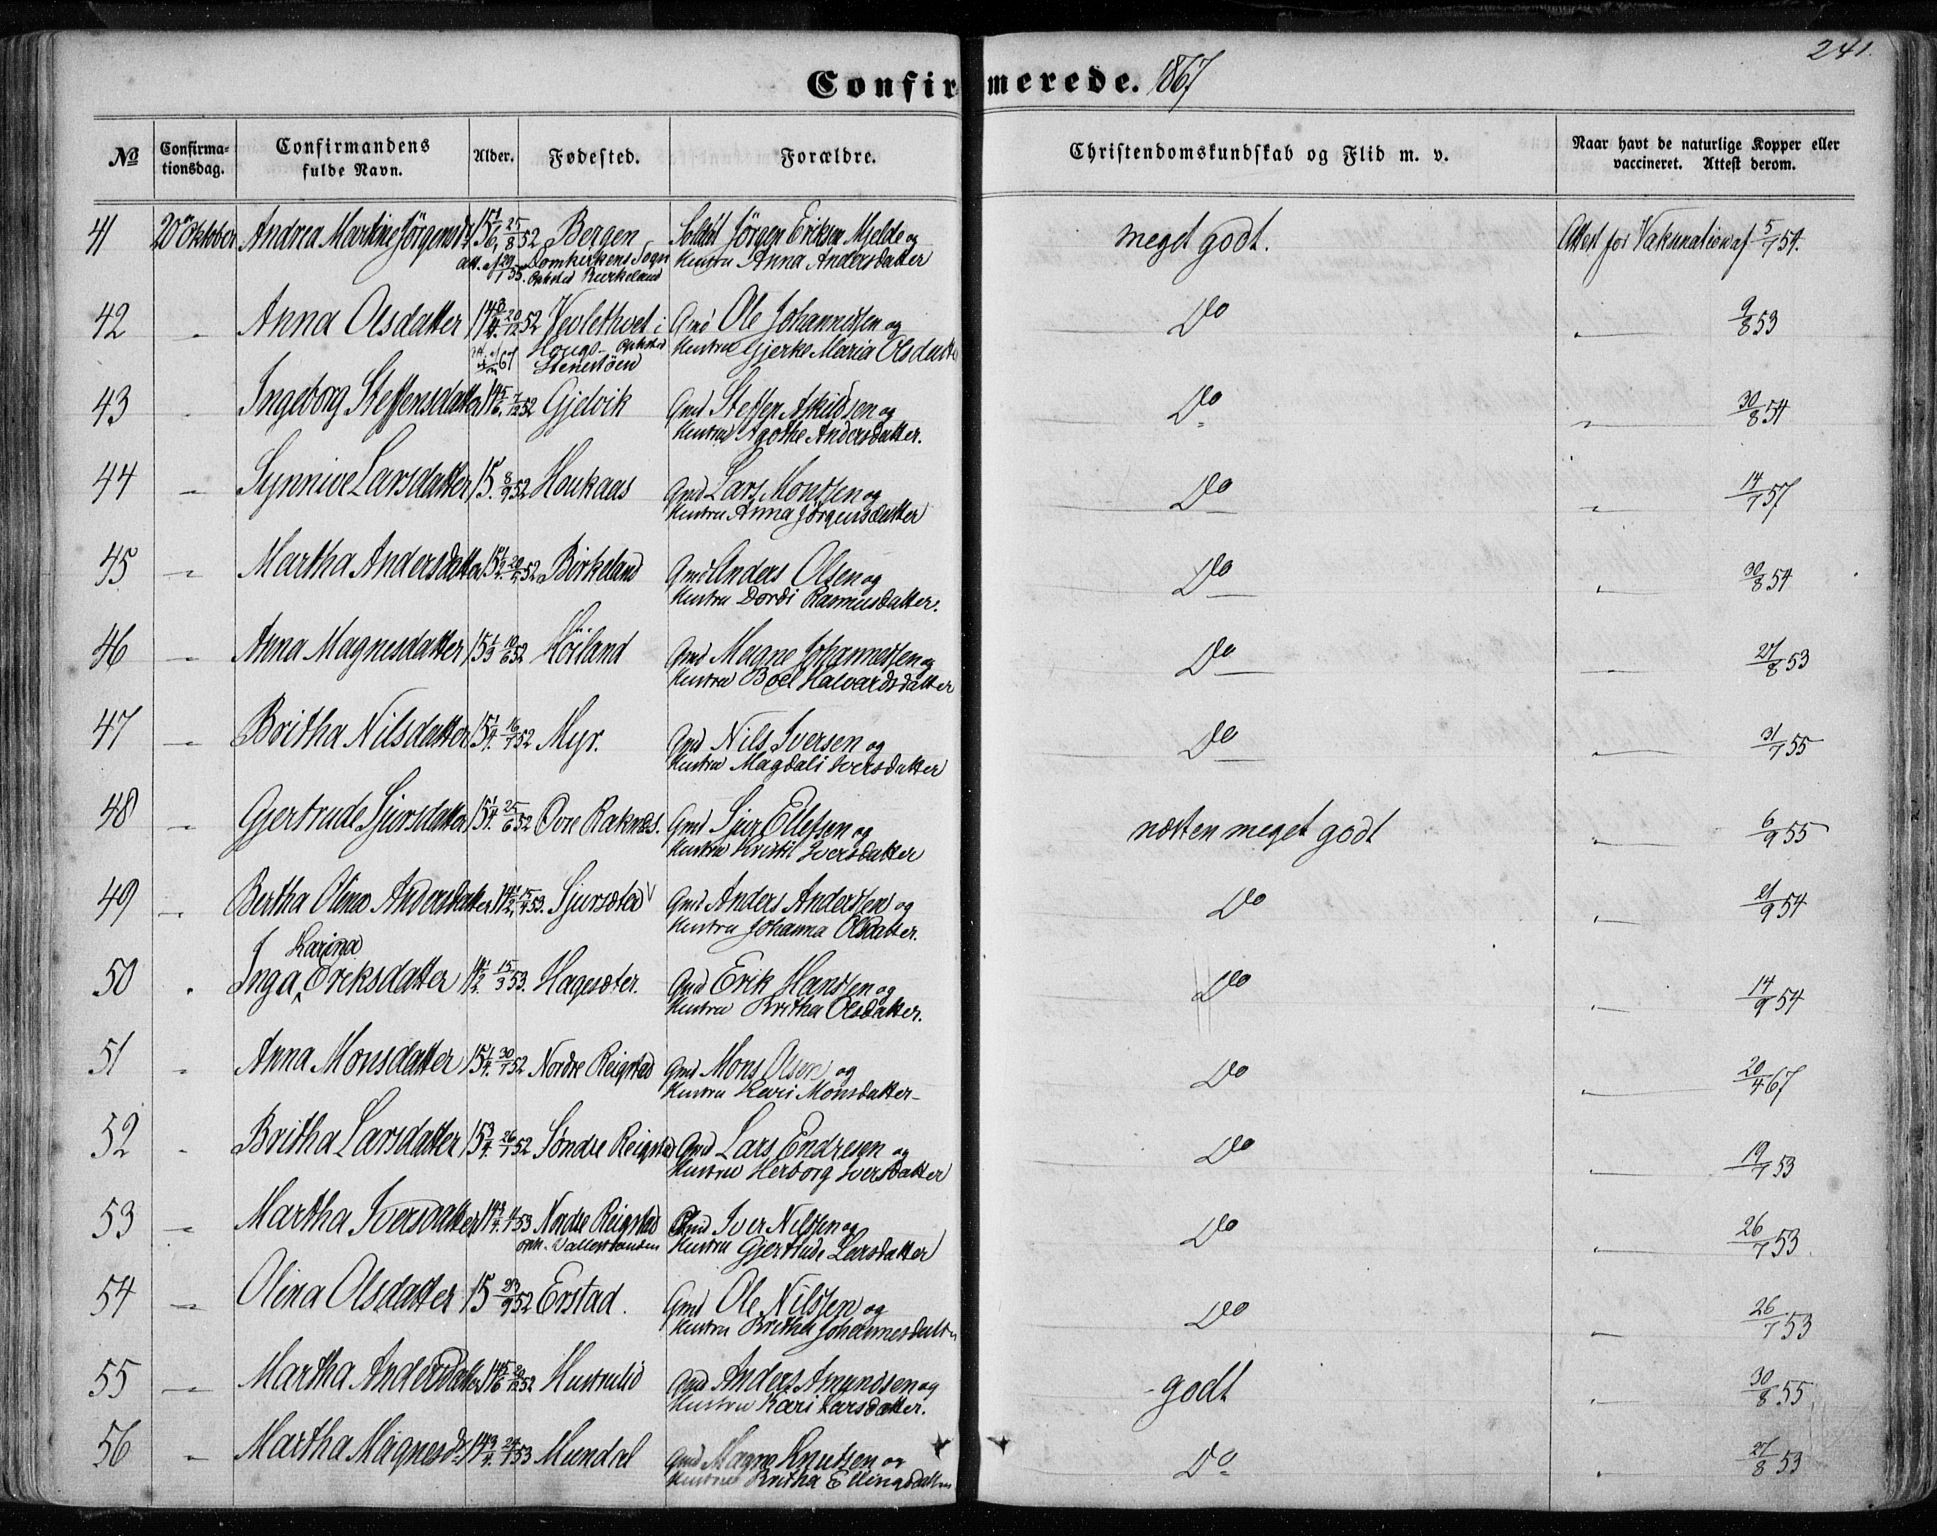 241.
Confirmerede. 1867
No
Confirma-
tionsdag.
Confirmandens
fulde Navn.
Alder.
Fødested.
Forældre.
Christendomskundskab og Flid m. v.
Naar havt de naturlige Kopper eller
vaccineret. Attest derom.
41 20 Oktober Andrea Martine Jörgensd. 15 1/6 25/8 52 Bergen Soldat Jörgen Eriksen Mjelde og meget godt. Attest for Vakcination af 5/7 54.
Domkirkens Sogn Hustru Anna Andersdatter
Birkeland
42 " Anna Olsdatter 14 3/4 20/12 52 i Gmd Ole Johannessen og Do " 9/8 53
Hougs- Hustru Gjerke Maria Olsdatter
43 " Ingeborg Steffensdatter 14 5/6 7/12 52 Gjelvik Gmd Steffen Askildsen og Do " 30/8 54
Hustru Agothe Andersdatter.
44 " Synnive Larsdatter 15 8/9 52 Houkaas Gmd Lars Monssen og Do " 14/7 57
Hustru Anna Jörgensdatter
45 " Martha Andersdatter 15 1/2 20/4 52 Birkeland Gmd Anders Olsen og Do " 30/8 54
Hustru Dordi Rasmusdatter.
46 " Anna Magnesdatter 15 1/3 10/6 52 Höiland Gmd Magne Johannessen og Do " 27/8 53
Hustru Boel Halvardsdatter
47 " Britha Nilsdatter 15 1/4 16/7 52 Myr. Gmd Nils Iversen og Do " 31/7 55
Hustru Magdali Iversdatter
48 " Gjertrude Sjursdatter 15 1/4 25/6 52 Övre Raknæs. Gmd Sjur Ellefsen og næsten meget godt " 6/9 55
Hustru Kristi Iversdatter
49 " Bertha Olina Andersdatter 14 1/2 15/4 53. Sjursæter Gmd Anders Anderssen og Do " 21/9 54
Hustru Johanna Olsdatter.
Karina
50 " Inga Eriksdatter 14 1/2 15/3 53. Hagesæter. Gmd Erik Hanssen og Do " 14/9 54
Hustru Britha Olsdatter.
51 " Anna Monsdatter 15 1/4 30/7 52 Nordre Reigstad Gmd Mons Olsen og Do " 20/4 67
Hustru Kari Monsdatter
52 " Britha Larsdatter 15 1/4 26/7 52 Söndre Reigstad Gmd Lars Endresen og Do " 19/7 53
Hustru Herborg Iversdatter
53 " Martha Iversdatter 14 3/4 53 Nordre Reigstad Gmd Iver Nilssen og Do " 26/7 53
Oph. Hustru Gjertrude Larsdatter
54 " Olina Olsdatter 15 23/9 52 Erstad. Gmd Ole Nilssen og Do " 26/7 53
Hustru Britha Johannesdatter
55 " Martha Andersdatter 14 5/6 20/12 52 Hustrulid Gmd Anders Amundsen og godt " 30/8 55
Hustru Kari Larsdatter.
56 " Martha Magnesdr. 14 3/4 24/1 53 Mundal Gmd Magne Knutsen og Do " 27/8 53
Hustru Britha Ellingsdatter